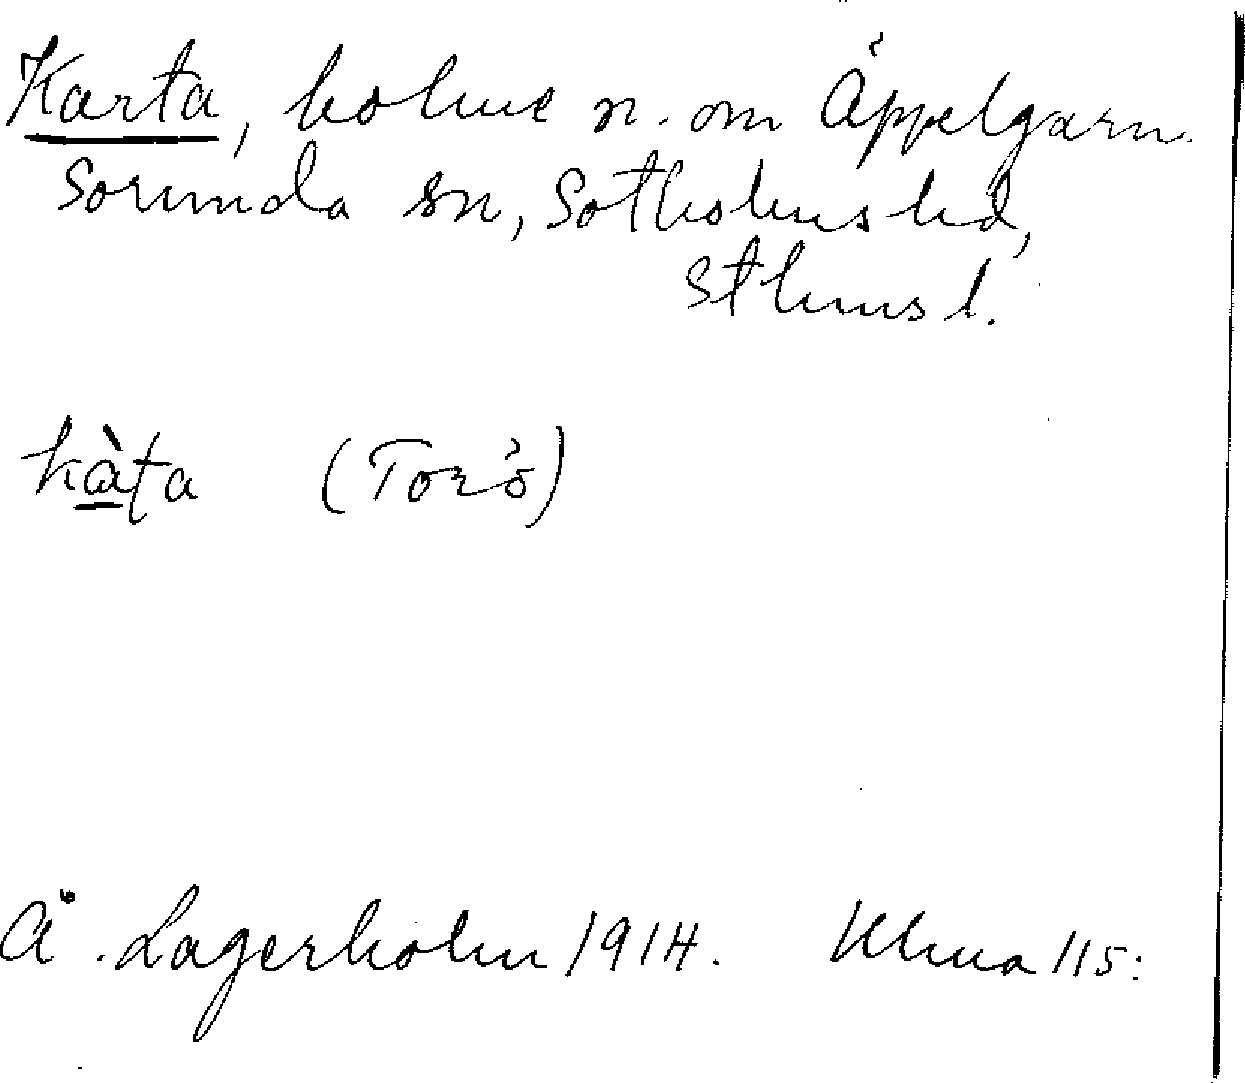 Karta, holme n. om Äppelgarn.
Sorunda sn, Sotholms hd,
Sthms l.
kàta (Torö)
Å. Lagerholm 1914.